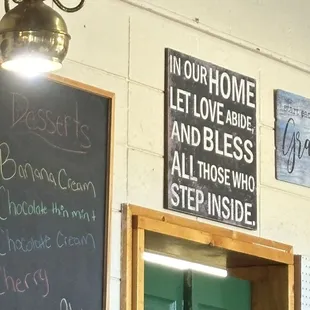 Desserts
Banana Cream
Chocolate thin mint
Chocolate Cream
Cherry
IN OUR HOME
LET LOVE ABIDE,
AND BLESS
ALL THOSE WHO
STEP INSIDE.